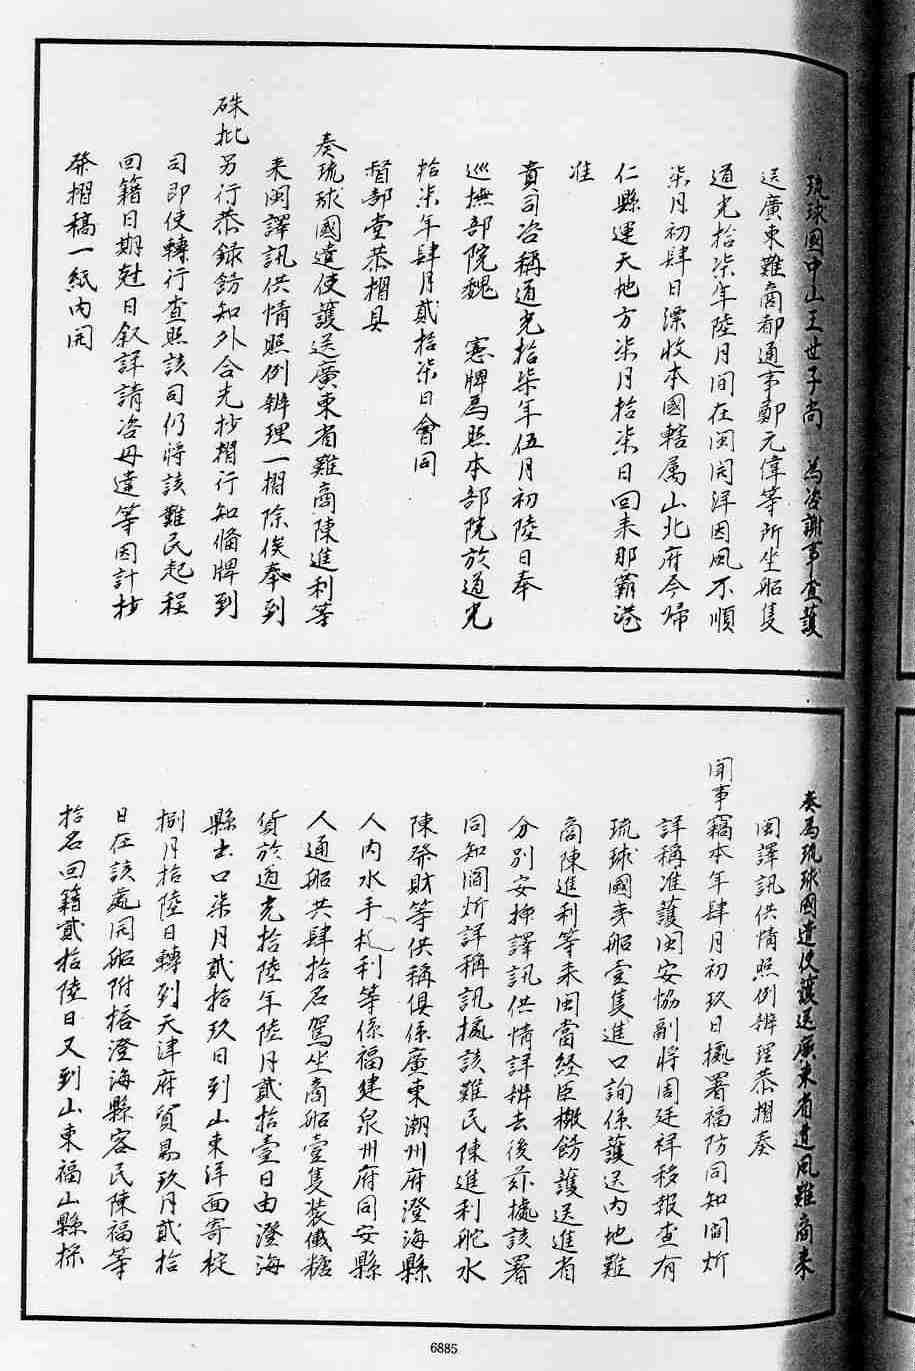 琉球國中山王世子尚　為咨謝事查護
送廣東難商都通事鄭元偉等所坐船隻
道光拾柒年陸月間在閩開洋因風不順
柒月初肆日漂收本國轄属山北府今歸
仁縣運天地方柒月拾柒日回来那霸港
准
貴司咨稱道光拾柒年伍月初陸日奉
巡撫部院魏　憲牌為照本部院於道光
拾柒年肆月貳拾柒日會同
督部堂恭摺具
奏琉球國遣使護送廣東省難商陳進利等
来閩譯訊供情照例辦理一摺除俟奉到
硃批另行恭録飭知外合先抄摺行知備牌到
司即使轉行查照該司仍將該難民起程
回籍日期尅日叙詳請咨毋違等因計抄
發摺稿一紙内開
奏為琉球國遣使護送廣東省遭風難商来
閩譯訊供情照例辦理恭摺奏
聞事竊本年肆月初玖日據署福防同知閻炘
詳稱准護閩安協副將周廷祥移報查有
琉球國夷船壹隻進口詢係護送内地難
商陳進利等来閩當經臣檄飭護送進省
分別安揷譯訊供情詳辦去後茲據該署
同知閻炘詳稱訊據該難民陳進利舵水
陳發財等供稱俱係廣東潮州府澄海縣
人内水手札利等係福建泉州府同安縣
人通船共肆拾名駕坐商船壹隻装儎糖
貨於道光拾陸年陸月貳拾壹日由澄海
縣出口柒月貳拾玖日到山東洋面寄椗
捌月拾陸日轉到天津府貿易玖月貳拾
日在該處開船附搭澄海縣客民陳福等
拾名回籍貳拾陸日又到山東福山縣採
6885